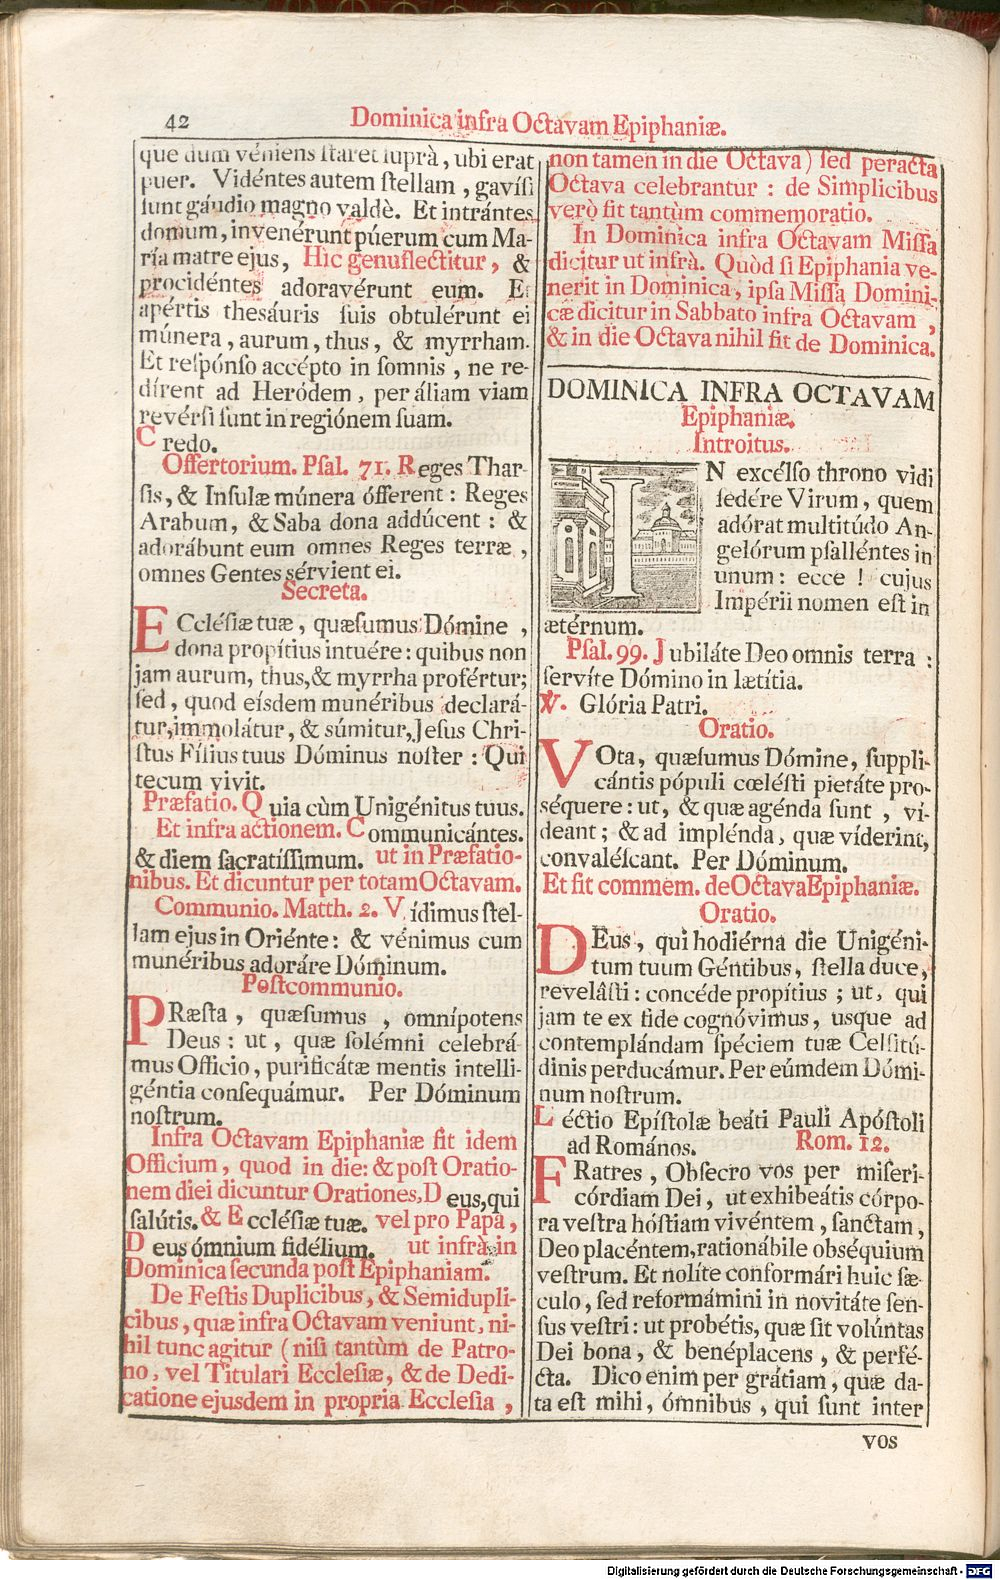 42
Dominica infra Octavam Epiphaniæ.
que dum véniens ſtaret ſuprà, ubi erat
puer. Vidéntes autem ſtellam, gavíſi
ſunt gáudio magno valdè. Et intrántes
domum, invenérunt púerum cum Ma-
ría matre ejus, Hìc genuflectitur, &
procidéntes adoravérunt eum. Et
apértis theſáuris ſuis obtulérunt ei
múnera, aurum, thus, & myrrham.
Et reſpónſo accépto in ſomnis, ne re-
dírent ad Heródem, per áliam viam
revérſi ſunt in regiónem ſuam.
Credo.
Offertorium. Pſal. 71. Reges Thar-
ſis, & Inſulæ múnera ófferent: Reges
Arabum, & Saba dona addúcent: &
adorábunt eum omnes Reges terræ,
omnes Gentes sérvient ei.
Secreta.
Eccléſiæ tuæ, quæſumus Dómine,
dona propítius intuére: quibus non
jam aurum, thus, & myrrha profértur;
ſed, quod eíſdem munéribus declará-
tur, immolátur, & súmitur, Jeſus Chri-
ſtus Fílius tuus Dóminus noſter: Qui
tecum vivit.
Præfatio. Quia cùm Unigénitus tuus.
Et infra actionem. Communicántes.
& diem ſacratíſſimum. ut in Præfatio-
nibus. Et dicuntur per totam Octavam.
Communio. Matth. 2. Vídimus ſtel-
lam ejus in Oriénte: & vénimus cum
munéribus adoráre Dóminum.
Poſtcommunio.
PRæſta, quæſumus, omnípotens
Deus: ut, quæ ſolémni celebrá-
mus Officio, purificátæ mentis intelli-
géntia conſequámur. Per Dóminum
noſtrum.
Infra Octavam Epiphaniæ fit idem
Officium, quod in die: & poſt Oratio-
nem diei dicuntur Orationes, Deus, qui
ſalútis. & Eccléſiæ tuæ. vel pro Papa,
Deus ómnium fidélium. ut infrà in
Dominica ſecunda poſt Epiphaniam.
De Feſtis Duplicibus, & Semidupli-
cibus, quæ infra Octavam veniunt, ni-
hil tunc agitur (niſi tantùm de Patro-
no, vel Titulari Eccleſiæ, & de Dedi-
catione ejusdem in propria Eccleſia,
non tamen in die Octava) ſed peracta
Octava celebrantur: de Simplicibus
verò fit tantùm commemoratio.
In Dominica infra Octavam Miſſa
dicitur ut infrà. Quòd ſi Epiphania ve-
nerit in Dominica, ipſa Miſſa Domini-
cæ dicitur in Sabbato infra Octavam,
& in die Octava nihil fit de Dominica.
DOMINICA INFRA OCTAVAM
Epiphaniæ.
Introitus.
IN excélſo throno vidi
ſedére Virum, quem
adórat multitúdo An-
gelórum pſalléntes in
unum: ecce! cujus
Impérii nomen eſt in
ætérnum.
Pſal. 99. Jubiláte Deo omnis terra:
ſervíte Dómino in lætítia.
℣. Glória Patri.
Oratio.
VOta, quæſumus Dómine, ſuppli-
cántis pópuli cœléſti pietáte pro-
séquere: ut, & quæ agénda ſunt, ví-
deant; & ad implénda, quæ víderint,
convaléſcant. Per Dóminum.
Et fit commem. de Octava Epiphaniæ.
Oratio.
DEus, qui hodiérna die Unigéni-
tum tuum Géntibus, ſtella duce,
revelâſti: concéde propítius; ut, qui
jam te ex fide cognóvimus, usque ad
contemplándam ſpéciem tuæ Celſitú-
dinis perducámur. Per eúmdem Dómi-
num nostrum.
Léctio Epíſtolæ beáti Pauli Apóſtoli
ad Romános. Rom. 12.
FRatres, Obſecro vos per miſeri-
córdiam Dei, ut exhibeátis córpo-
ra veſtra hóſtiam vivéntem, ſanctam,
Deo placéntem, rationábile obséquium
veſtrum. Et nolíte conformári huic ſæ-
culo, ſed reformámini in novitáte ſen-
ſus veſtri: ut probétis, quæ ſit volúntas
Dei bona, & benéplacens, & perfé-
cta. Dico enim per grátiam, quæ da-
ta eſt mihi, ómnibus, qui ſunt inter
vos
Digitalisierung gefördert durch die Deutsche Forschungsgemeinschaft - DFG